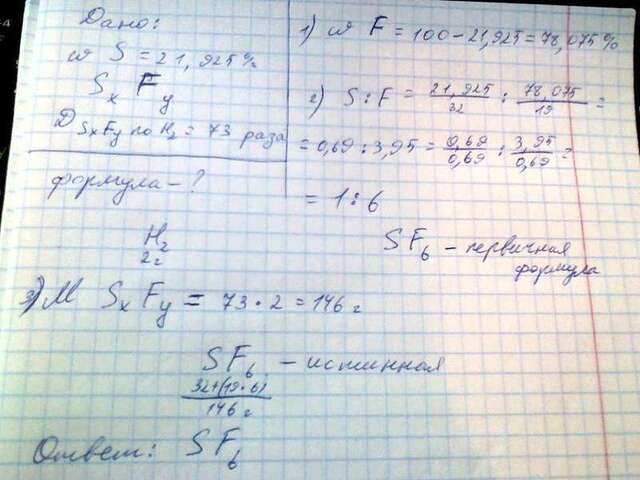 Дано:
w S = 21,925%
SxFy
D SxFy по H2 = 73 раза
формула - ?
1) w F = 100 - 21,925 = 78,075%
2) S : F = 21,925/32 : 78,075/19 =
= 0,69 : 3,95 = 0,69/0,69 : 3,95/0,69 =
= 1 : 6
SF6 - первичная
формула
H2
2г
3) M SxFy = 73 · 2 = 146 г
SF6 - истинная
32+(19·6)
146 г
Ответ: SF6